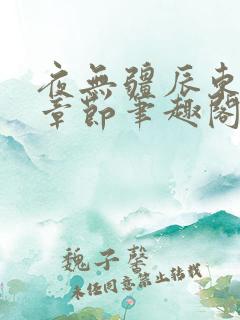 夜無疆辰東
章節筆趣閣
魏子馨
未经同意禁止转载